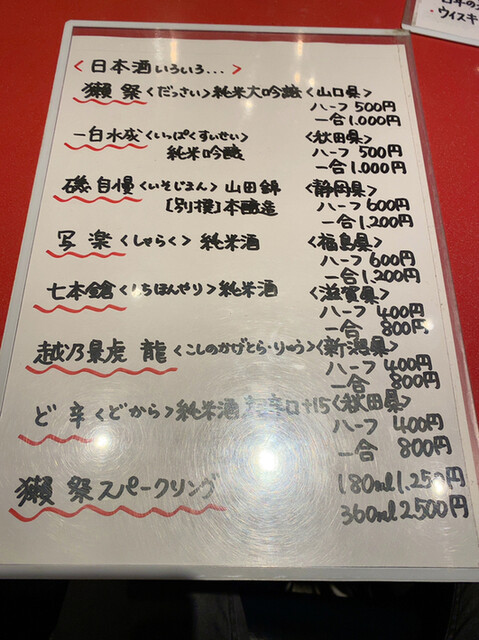 日本の
・ウイスキ
<日本酒いろいろ...>
獺祭<だっさい>純米大吟醸<山口県>
ハーフ 500円
一合 1.000円
一白水成<いっぱくすいせい> <秋田県>
純米吟醸 ハーフ 500円
一合 1.000円
磯自慢<いそじまん>山田錦 <静岡県>
[別撰]本醸造 ハーフ 600円
一合 1.200円
写楽<しゃらく>純米酒 <福島県>
ハーフ 600円
一合 1.200円
七本鎗<しちほんやり>純米酒 <滋賀県>
ハーフ 400円
一合 800円
越乃景虎 龍<こしのかげとら・りゅう><新潟県>
ハーフ 400円
一合 800円
ど辛<どから>純米酒 超辛口+15<秋田県>
ハーフ 400円
一合 800円
獺祭スパークリング 180ml 1.250円
360ml 2500円